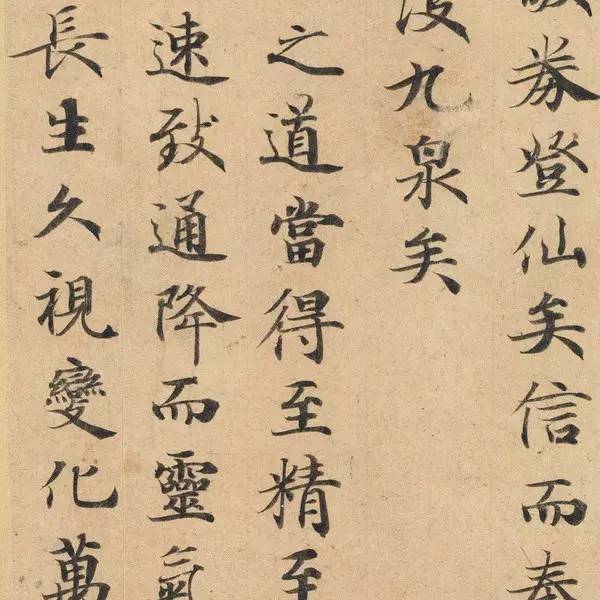 券登仙矣信而奉
九泉矣
之道當得至精至
速致通降而靈氣
長生久視變化萬